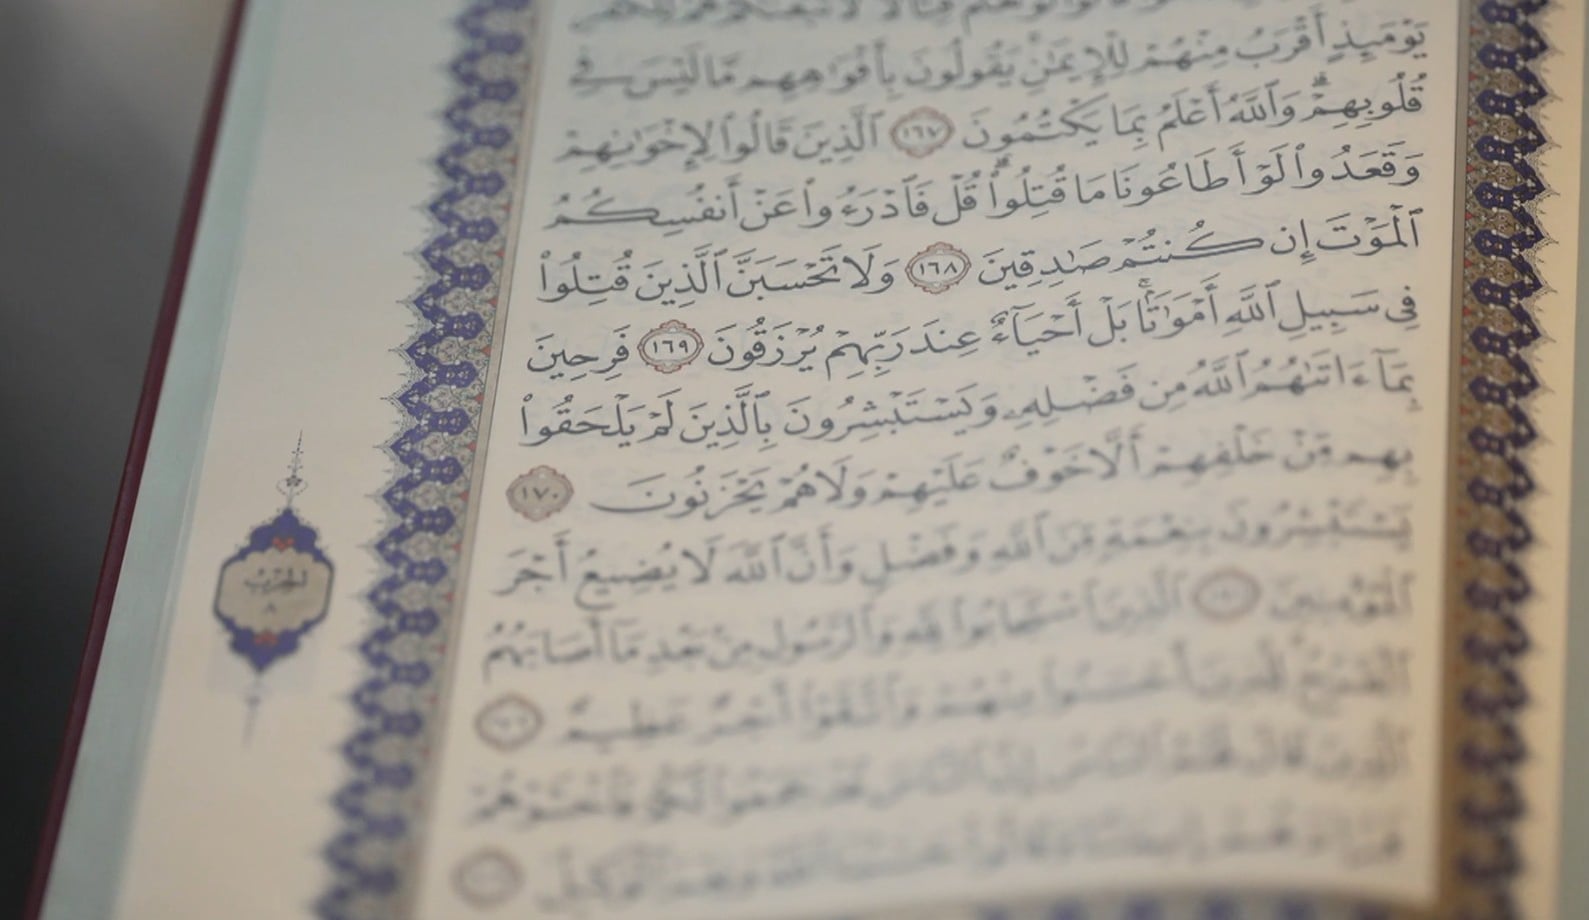 يَوْمَئِذٍ أَقْرَبُ مِنْهُمْ لِلْإِيمَٰنِ يَقُولُونَ بِأَفْوَٰهِهِم مَّا لَيْسَ فِى
قُلُوبِهِمْ ۗ وَٱللَّهُ أَعْلَمُ بِمَا يَكْتُمُونَ ١٦٧ ٱلَّذِينَ قَالُوا۟ لِإِخْوَٰنِهِمْ
وَقَعَدُوا۟ لَوْ أَطَاعُونَا مَا قُتِلُوا۟ ۗ قُلْ فَٱدْرَءُوا۟ عَنْ أَنفُسِكُمُ
ٱلْمَوْتَ إِن كُنتُمْ صَٰدِقِينَ ١٦٨ وَلَا تَحْسَبَنَّ ٱلَّذِينَ قُتِلُوا۟
فِى سَبِيلِ ٱللَّهِ أَمْوَٰتًۢا ۚ بَلْ أَحْيَآءٌ عِندَ رَبِّهِمْ يُرْزَقُونَ ١٦٩ فَرِحِينَ
بِمَآ ءَاتَىٰهُمُ ٱللَّهُ مِن فَضْلِهِۦ وَيَسْتَبْشِرُونَ بِٱلَّذِينَ لَمْ يَلْحَقُوا۟
بِهِم مِّنْ خَلْفِهِمْ أَلَّا خَوْفٌ عَلَيْهِمْ وَلَا هُمْ يَحْزَنُونَ ١٧٠
يَسْتَبْشِرُونَ بِنِعْمَةٍ مِّنَ ٱللَّهِ وَفَضْلٍ وَأَنَّ ٱللَّهَ لَا يُضِيعُ أَجْرَ
ٱلْمُؤْمِنِينَ ٱلَّذِينَ ٱسْتَجَابُوا۟ لِلَّهِ وَٱلرَّسُولِ مِنۢ بَعْدِ مَآ أَصَابَهُمُ
ٱلْقَرْحُ ۚ لِلَّذِينَ أَحْسَنُوا۟ مِنْهُمْ وَٱتَّقَوْا۟ أَجْرٌ عَظِيمٌ
الحزب
٨